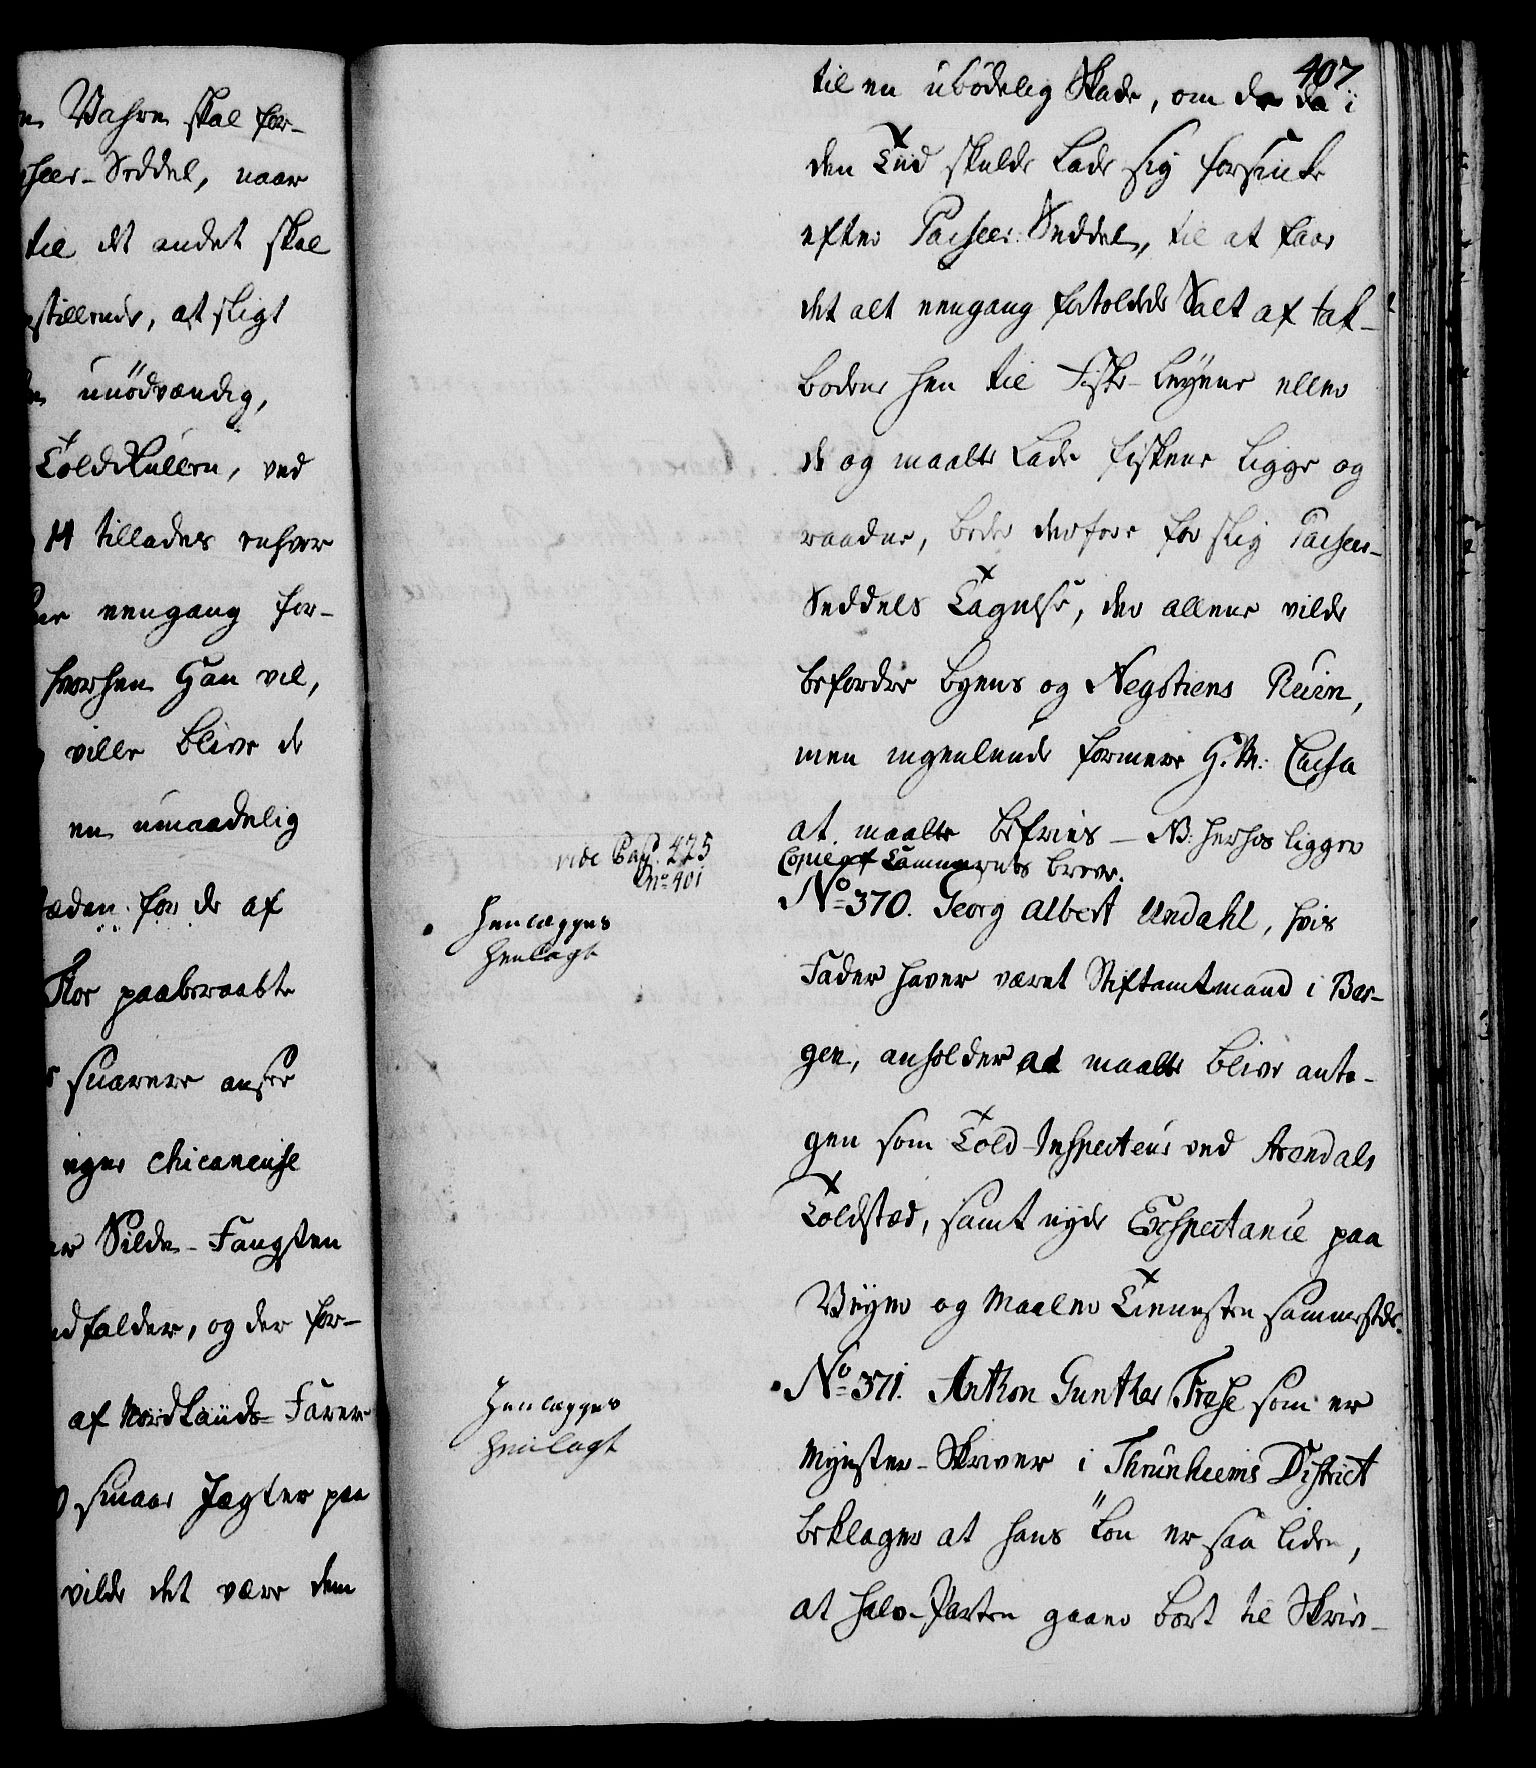 n Vahre skal for-
seer-Seddel, naar
til det andet skal
stillende, at sligt
unödvændig,
ToldRullen, ved
14 tillades enhver
eengang for-
hvorhen han vil,
ville blive de
en umaadelig
for de af
Flor paaberaabte
suarere ansee
egne chicaneuse
Silde-Fangsten
dfalder, og der for-
af Nordlands-Farer
smaae Jægter paa
vilde det være dem
407
til en ubödelig Skade, om de da i
den Tiid skulde lade sig forsinke
efter Passeer-Seddel, til at faae
det alt eengang fortoldede Salt af tak-
boderne hen til Fiske-Leyene eller
de og maatte lade fiskene ligge og
raadne, beder derfore for slig Passeer-
Seddels Tagelse, der allene vilde
befordre byens og Negotiens Ruin,
men ingenlunde formere H. M: Cassa
at maatte befries - NB: herhos ligger
Copie af Cammerets brev.
vide Pag. 425
No. 401
Henlægges
henlagt
No. 370. Georg Albert Undahl, hvis
Fader haver været Stiftamtmand i Ber-
gen, anholder at maatte blive anta-
gen som Told-Inspecteur ved Arendals
Toldsted, samt nyde Exspectance paa
Veyer og Maaler Tienesten sammesteds.
Henlægges
henlagt
No. 371. Anthon Gunther Frese som er
Mynster-Skriver i Thrunhiems District
beklager at hans Lön er saa liden,
at halv-Parten gaaer bort til Skriv-